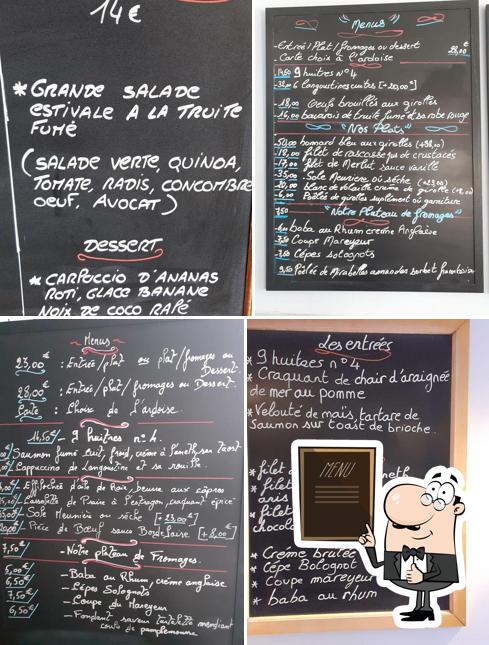 14€
* GRANDE SALADE
ESTIVALE A LA TRUITE
FUMÉ
(SALADE VERTE, QUINOA,
TOMATE, RADIS, CONCOMBRE
OEUF, AVOCAT)
DESSERT
* CARPACCIO D'ANANAS
ROTI, GLACE BANANE
NOIX DE COCO RAPÉ
"Menus"
-Entrée/Plat/fromages ou dessert
Carte choix à l'ardoise
28,00 €
14,50 9 huitres n°4
6 langoustines cuites [+20,00€]
18,00 Oeufs brouillés aux girolles
16,00 bavarois de truite fumé et sa robe rouge
"Nos Plats"
homard bleu aux girolles
18,00 filet de rascasse jus de crustacés
17,00 filet de Merlut sauce vanille
35,00 Sole Meuniere ou séche
20,00 blanc de volaille creme de girolle
Poêlée de girolles suplement ou garniture
7,50 "Notre Plateau de fromages"
baba au Rhum creme Anglaise
Coupe Mareyeur
Cépes Sologots
Poêlée de Mirabelles amandes sorbet framboise
~ Menus ~
23,00 : Entrée/plat ou plat/fromages ou
Dessert.
28,00 : Entrée/plat/fromages ou Dessert.
Carte : Choix de l'ardoise.
16,50€ - 9 huitres n° 4.
Saumon fumé cuit, froid, crème à l'aneth, son toast
Cappuccino de Langoustine et sa rouille.
aile de Raie, beurre aux câpres
Cassolette de Praire à craquant épicé
Sole Meunière ou sèche [+23,00€]
Pièce de Bœuf sauce Bordelaise [+8,00€]
7,50€ - Notre plateau de Fromages.
5,00€ - Baba au Rhum, crème anglaise
6,50€ - Cépes Solognots
7,50€ - Coupe du Mareyeur
6,50€ - Fondant saveur tartelette mendiant
coulis de pamplemousse
Les entrées
* 9 huitres n°4
* Craquant de chair d'araignée
de mer au pomme
* Velouté de maïs tartare de
Saumon sur toast de brioche
* filet
* filet
anis
* filet
chocol
MENU
* Crème brulée
* Cépe Bologot
* Coupe mareyeur
* baba au rhum